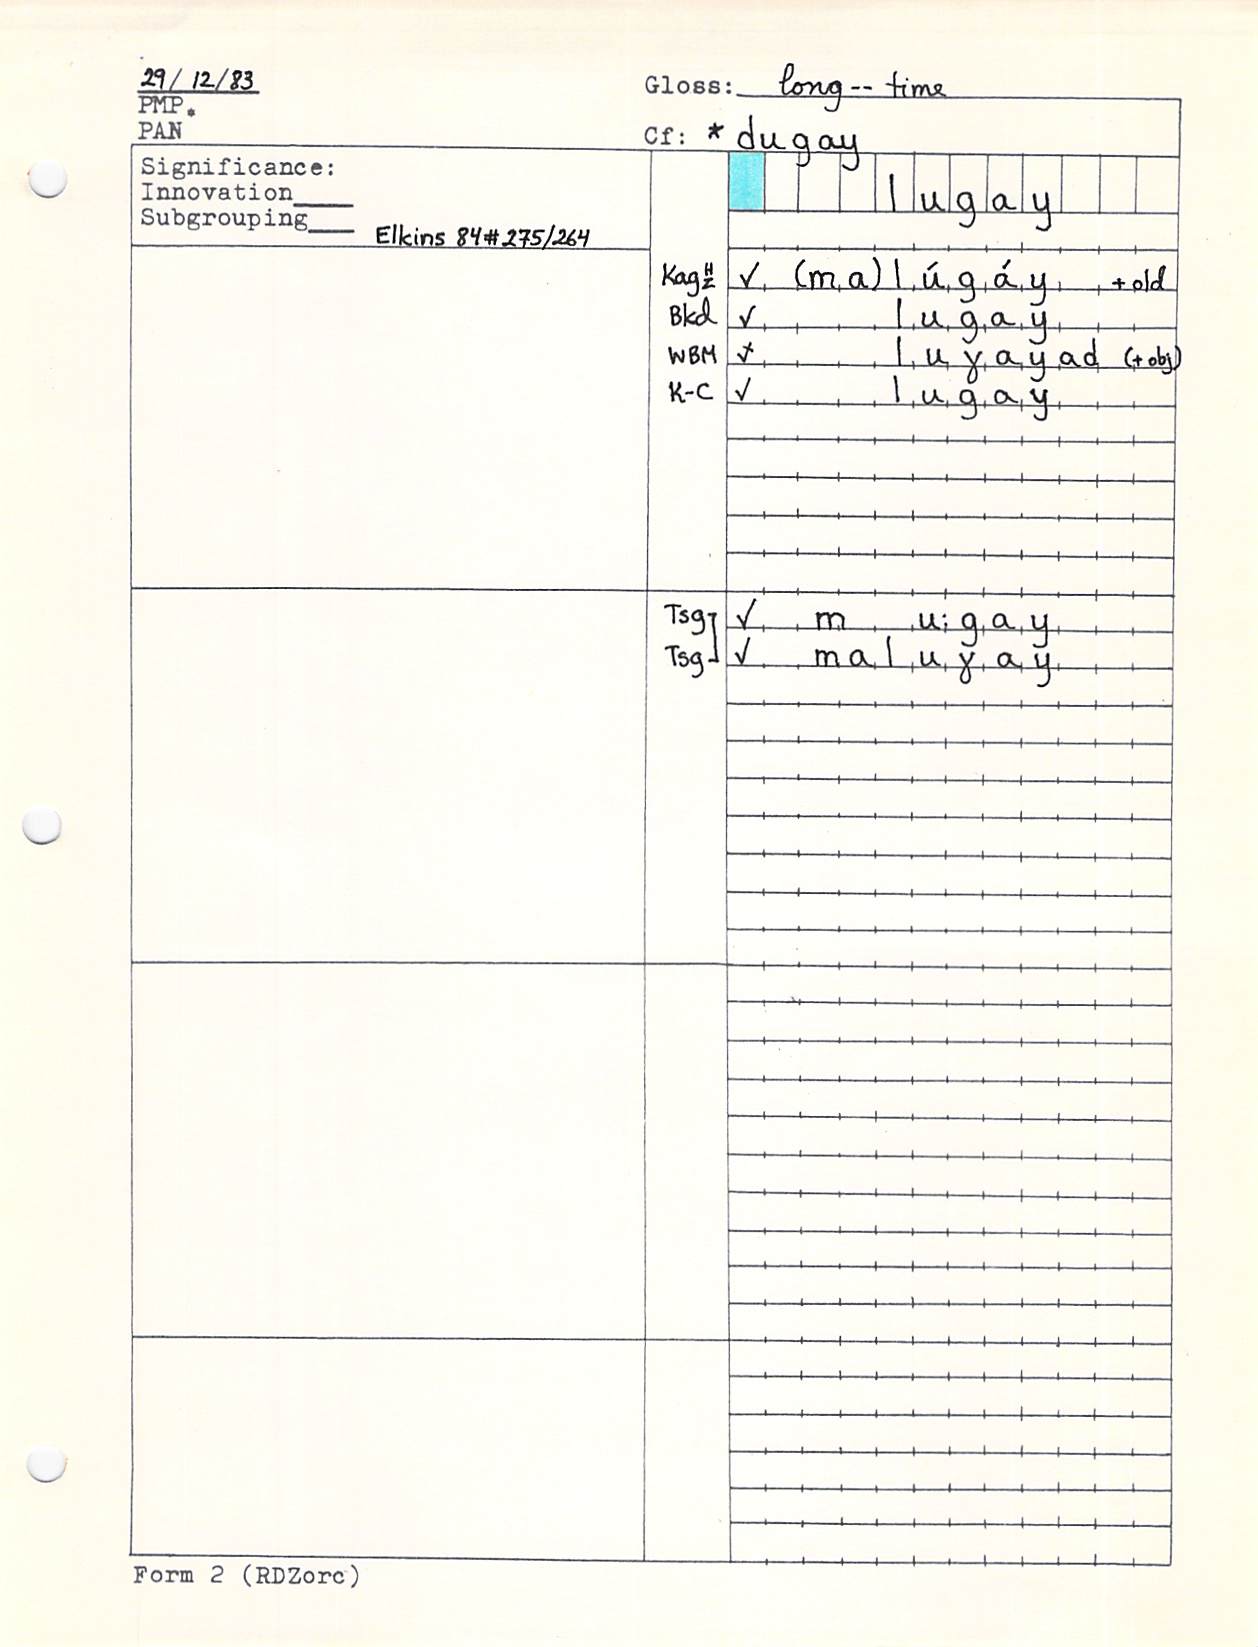 29/12/83
PMP.
PAN
Gloss: long -- time
Cf: * dugay
Significance:
Innovation____
Subgrouping____
Elkins 84#275/264
lugay
Kag H/Z ✓ (ma)lúgáy +old
Bkd ✓ lugay
WBM ✓ luɣayad (+obj)
K-C ✓ lugay
Tsg ✓ m u:gay
Tsg ✓ maluɣay
Form 2 (RDZorc)